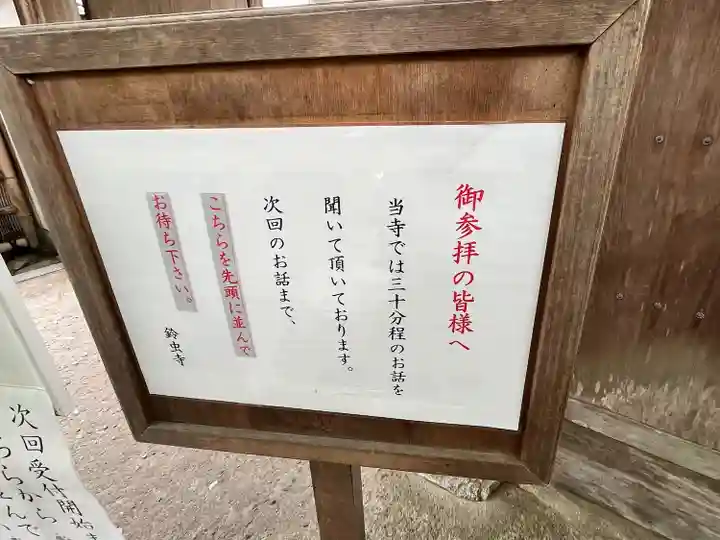 御参拝の皆様へ
当寺では三十分程のお話を
聞いて頂いております。
次回のお話まで、
こちらを先頭に並んで
お待ち下さい。
鈴虫寺
次回受付開始
ちらから